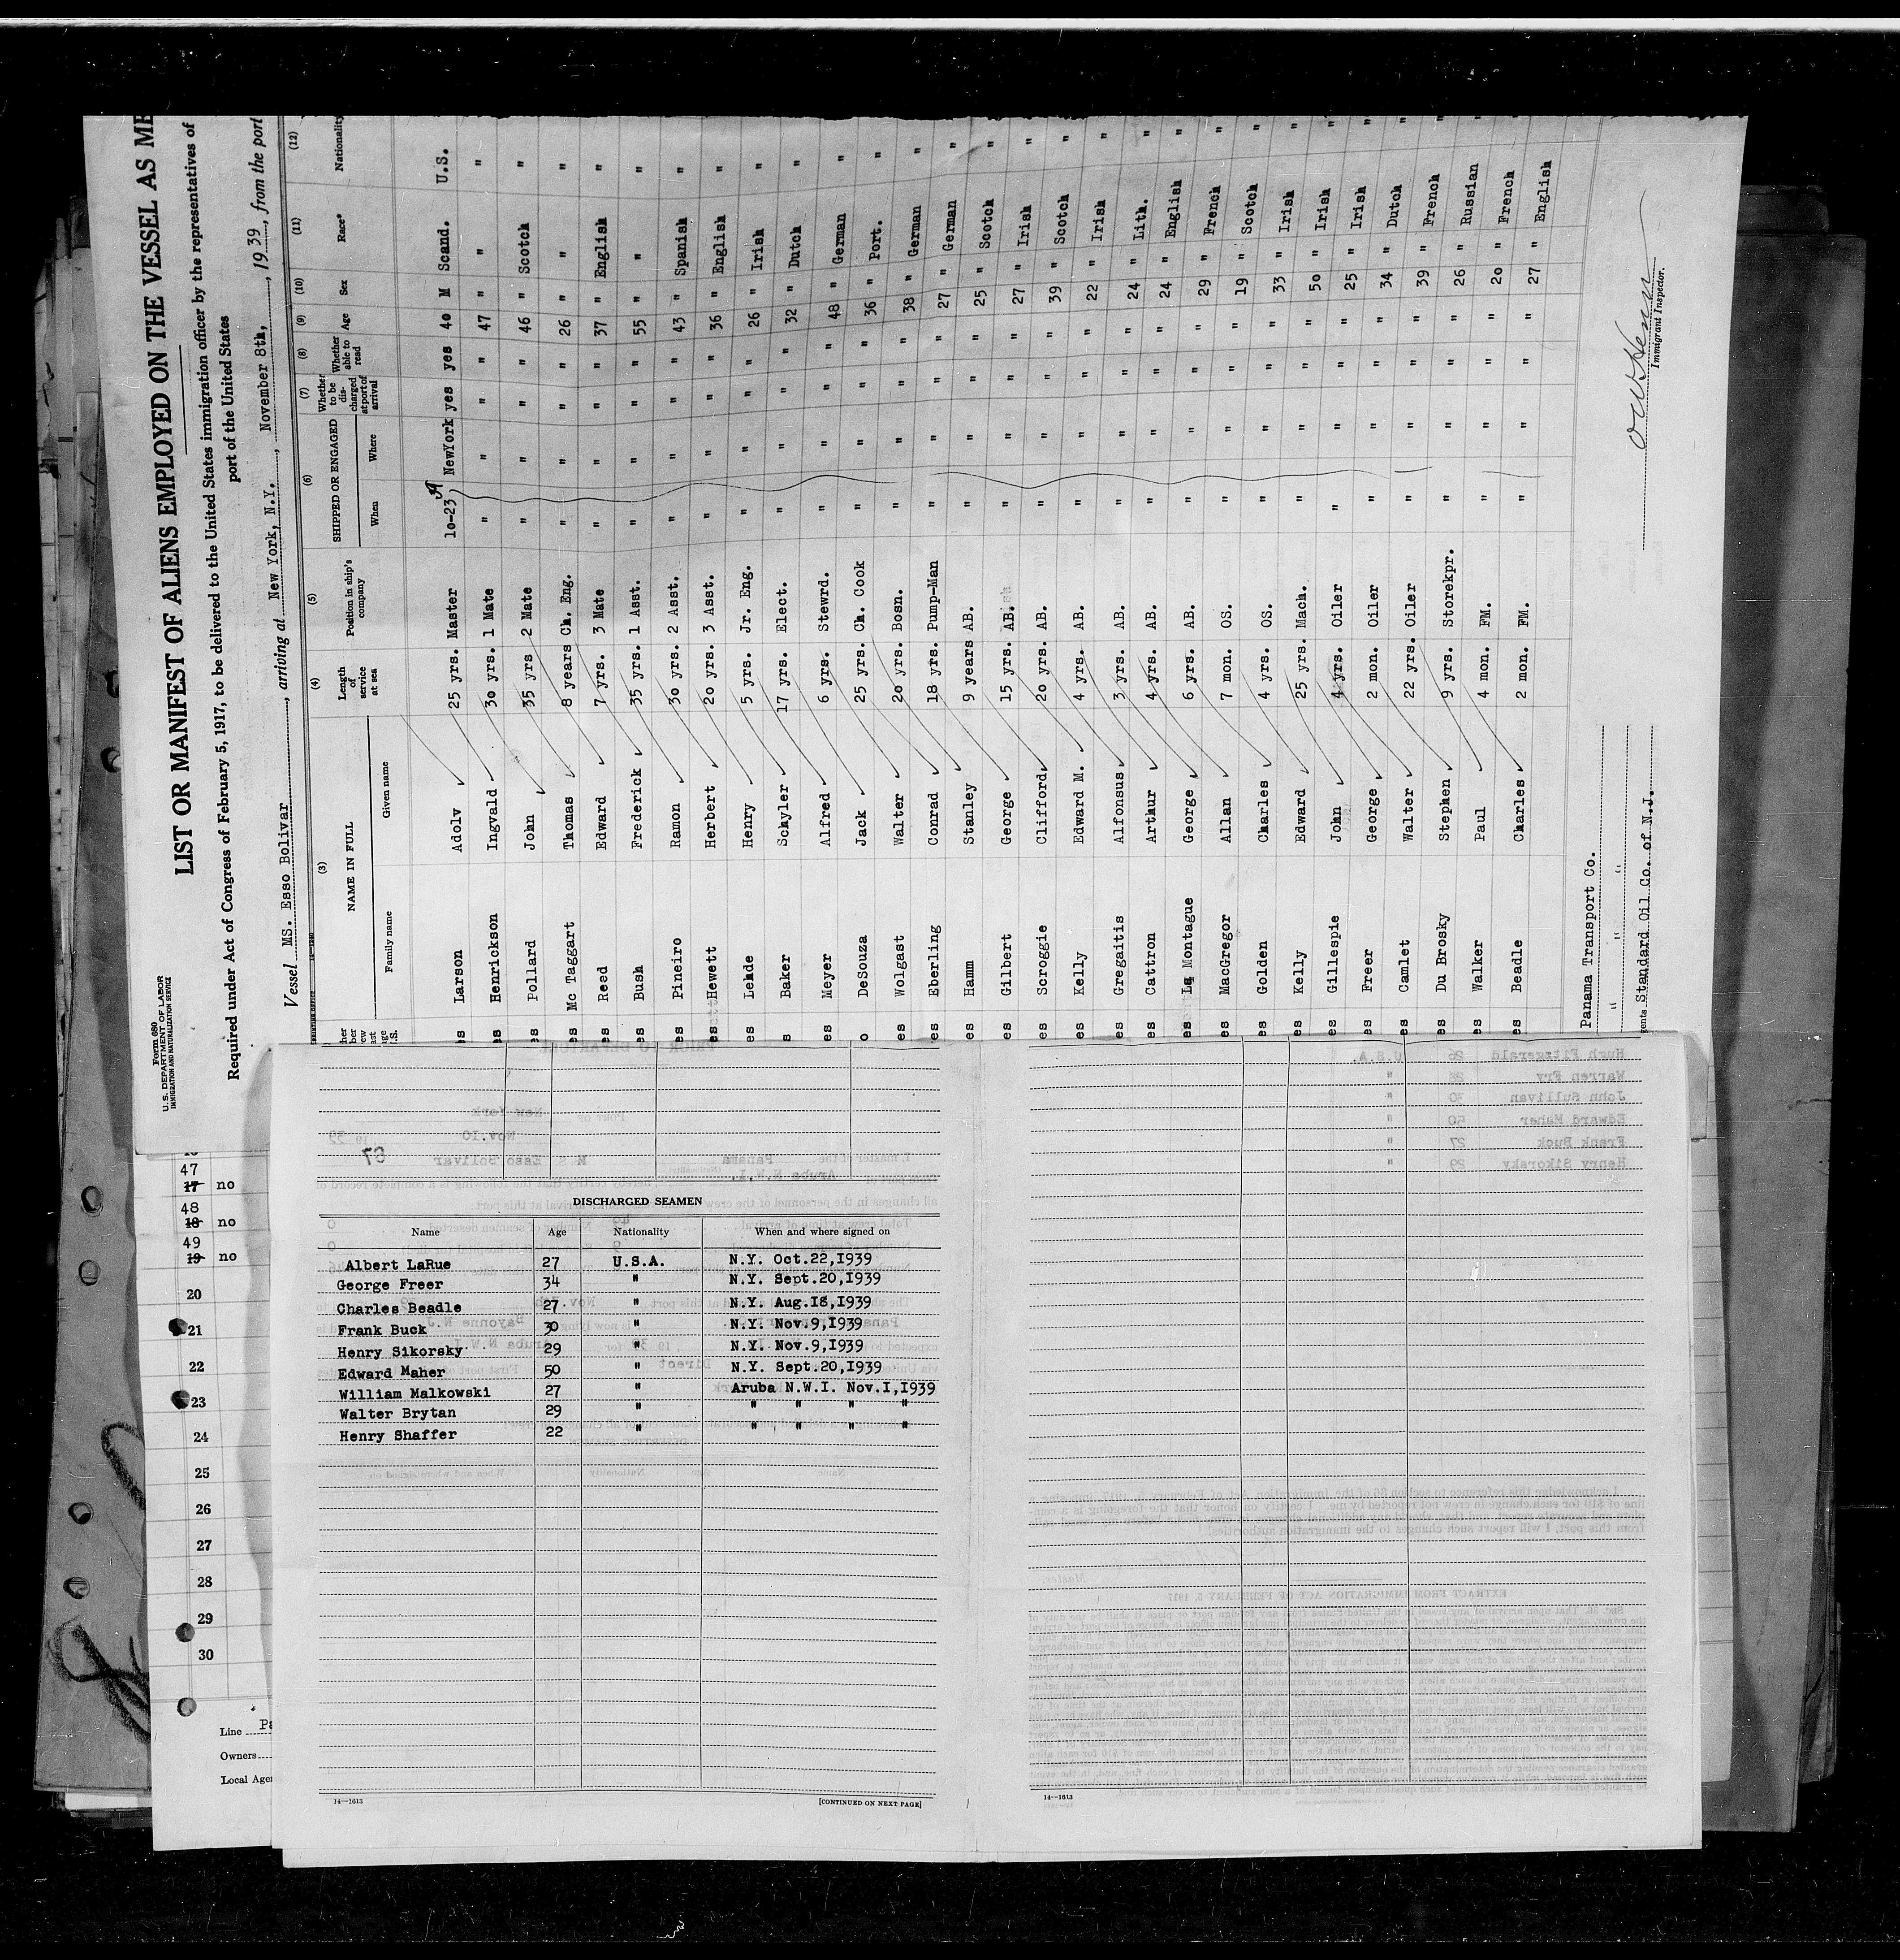 Form 680
U. S. DEPARTMENT OF LABOR
IMMIGRATION AND NATURALIZATION SERVICE
LIST OR MANIFEST OF ALIENS EMPLOYED ON THE VESSEL AS ME
Required under Act of Congress of February 5, 1917, to be delivered to the United States immigration officer by the representatives of
port of the United States
Vessel MS. Esso Bolivar, arriving at New York, N.Y., November 8th, 19 39, from the port
(3) (4) (5) (6) (7) (8) (9) (10) (11) (12)
NAME IN FULL Length of service at sea Position in ship's company SHIPPED OR ENGAGED Whether to be discharged at port of arrival Whether able to read Age Sex Race* Nationality
Family name Given name When Where
es Larson Adolv 25 yrs. Master 10-23 39 NewYork yes yes 40 M Scand. U.S.
es Henrickson Ingvald 30 yrs. 1 Mate " " " " 47 " " "
es Pollard John 35 yrs 2 Mate " " " " 46 " Scotch "
es Mc Taggart Thomas 8 years Ch. Eng. " " " " 26 " " "
es Reed Edward 7 yrs. 3 Mate " " " " 37 " English "
es Bush Frederick 35 yrs. 1 Asst. " " " " 55 " " "
es Pineiro Ramon 30 yrs. 2 Asst. " " " " 43 " Spanish "
es Hewett Herbert 20 yrs. 3 Asst. " " " " 36 " English "
es Lehde Henry 5 yrs. Jr. Eng. " " " " 26 " Irish "
s Baker Schyler 17 yrs. Elect. " " " " 32 " Dutch "
es Meyer Alfred 6 yrs. Stewrd. " " " " 48 " German "
o DeSouza Jack 25 yrs. Ch. Cook " " " " 36 " Port. "
es Wolgast Walter 20 yrs. Bosn. " " " " 38 " German "
es Eberling Conrad 18 yrs. Pump-Man " " " " 27 " German "
es Hamm Stanley 9 years AB. " " " " 25 " Scotch "
es Gilbert George 15 yrs. AB. " " " " 27 " Irish "
es Scroggie Clifford 20 yrs. AB. " " " " 39 " Scotch "
es Kelly Edward M. 4 yrs. AB. " " " " 22 " Irish "
es Gregaitis Alfonsus 3 yrs. AB. " " " " 24 " Lith. "
es Cattron Arthur 4 yrs. AB. " " " " 24 " English "
es La Montague George 6 yrs. AB. " " " " 29 " French "
es MacGregor Allan 7 mon. OS. " " " " 19 " Scotch "
es Golden Charles 4 yrs. OS. " " " " 33 " Irish "
es Kelly Edward 25 yrs. Mach. " " " " 50 " Irish "
es Gillespie John 4 yrs. Oiler " " " " 25 " Irish "
es Freer George 2 mon. Oiler " " " " 34 " Dutch "
es Camlet Walter 22 yrs. Oiler " " " " 39 " French "
es Du Brosky Stephen 9 yrs. Storekpr. " " " " 26 " Russian "
es Walker Paul 4 mon. FM. " " " " 20 " French "
es Beadle Charles 2 mon. FM. " " " " 27 " English
Panama Transport Co.
" " "
gents Standard Oil Co. of N.J.
Immigrant Inspector.
47
17 no
48
18 no
49
19 no
20
21
22
23
24
25
26
27
28
29
30
Line Pa
Owners
Local Age
DISCHARGED SEAMEN
Name Age Nationality When and where signed on
Albert LaRue 27 U.S.A. N.Y. Oct.22,1939
George Freer 34 " N.Y. Sept.20,1939
Charles Beadle 27 " N.Y. Aug.18,1939
Frank Buck 30 " N.Y. Nov.9,1939
Henry Sikorsky 29 " N.Y. Nov.9,1939
Edward Maher 50 " N.Y. Sept.20,1939
William Malkowski 27 " Aruba N.W.I. Nov.1,1939
Walter Brytan 29 " " " " "
Henry Shaffer 22 " " " "
14—1613
[CONTINUED ON NEXT PAGE]
14—1613
Hugh Fitzgerald 26 U.S.A.
Warren Fry 28 "
John Sullivan 30 "
Edward Maher 50 "
Frank Buck 27 "
Henry Sikorsky 29 "